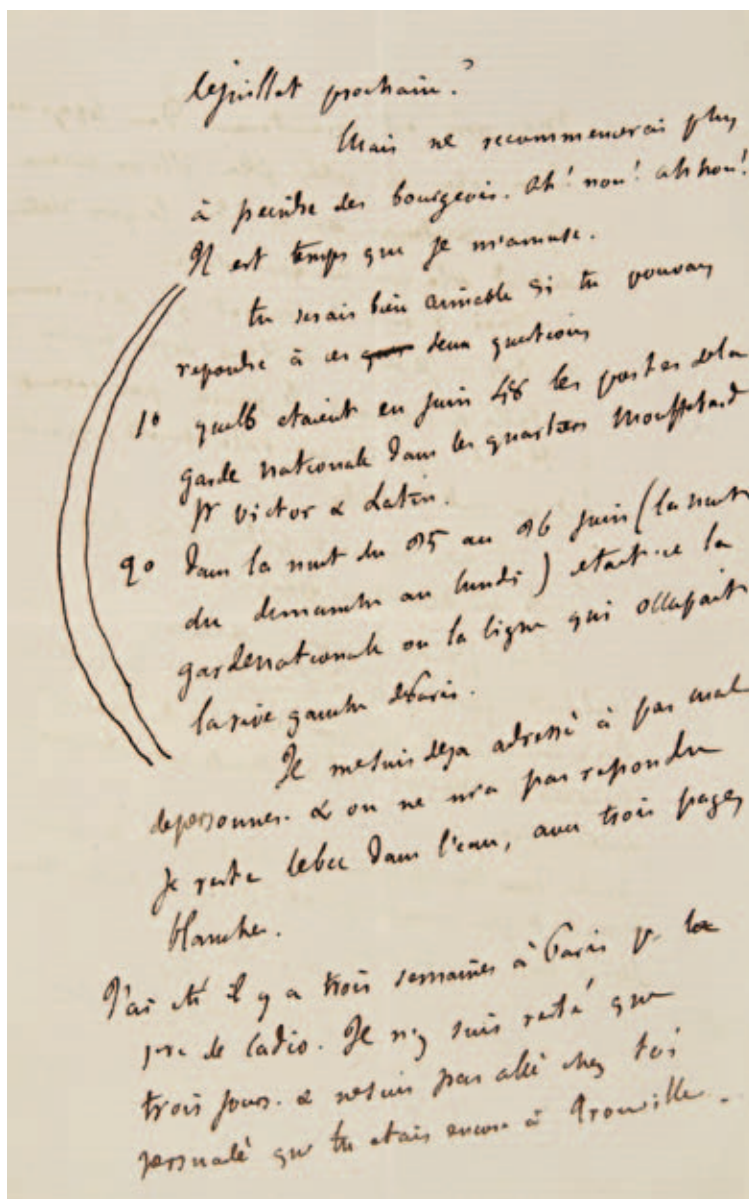 le juillet prochain?
Mais ne recommencerai plus
à peindre des bourgeois. Ah! non! ah non!
Il est temps que je m'amuse.
tu serais bien aimable si tu pouvais
repondre à ces deux questions
1° quels etaient en juin 48 les postes de la
garde nationale dans les quartiers Mouffetard
St victor & Latin.
2° Dans la nuit du 25 au 26 juin (la nuit
du dimanche au lundi) etait-ce la
garde nationale ou la ligne qui occupait
la rive gauche de Paris.
Je me suis deja adressé à pas mal
de personnes. & on ne m'a pas repondu
Je reste le bec dans l'eau, avec trois pages
blanches.
J'ai eté il y a trois semaines à Paris pr la
pre de Cadio. Je n'y suis resté que
trois jours. & ne suis pas allé chez toi
persuadé que tu etais encore à Trouville.